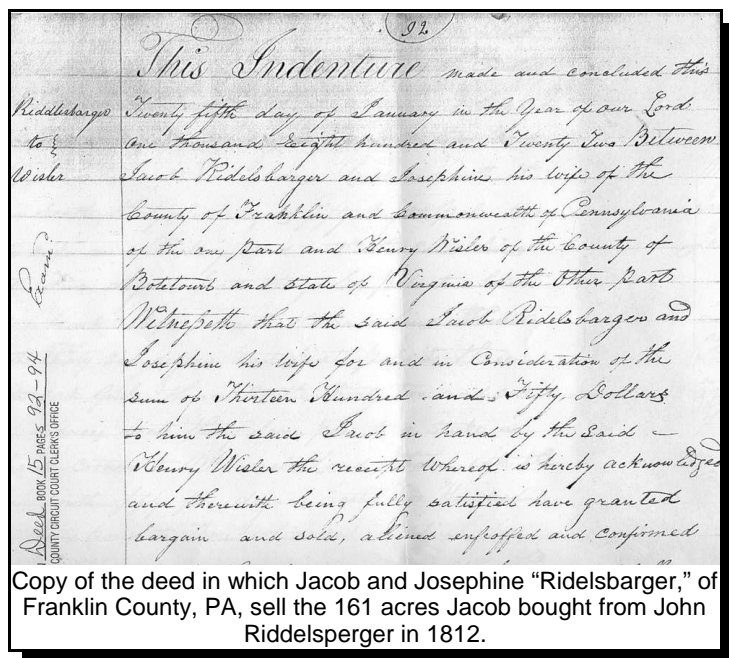 92
This Indenture made and concluded this
Riddlesbarger
to
Wisler
Twenty fifth day of January in the Year of our Lord
One thousand Eight hundred and Twenty Two Between
Jacob Ridelsbarger and Josephine his wife of the
County of Franklin and Commonwealth of Pennsylvania
of the one part and Henry Wisler of the County of
Botetourt and state of Virginia of the Other part
Witnesseth that the said Jacob Ridelsbarger and
Josephine his wife for and in Consideration of the
sum of Thirteen Hundred and Fifty Dollars
to him the said Jacob in hand by the said –
Henry Wisler the receipt Whereof is hereby acknowledged
and therewith being fully satisfied have granted
bargain and sold, aliened enfeoffed and confirmed
Exam.
Deed BOOK 15 PAGES 92-94
COUNTY CIRCUIT COURT CLERK'S OFFICE
Copy of the deed in which Jacob and Josephine “Ridelsbarger,” of
Franklin County, PA, sell the 161 acres Jacob bought from John
Riddelsperger in 1812.